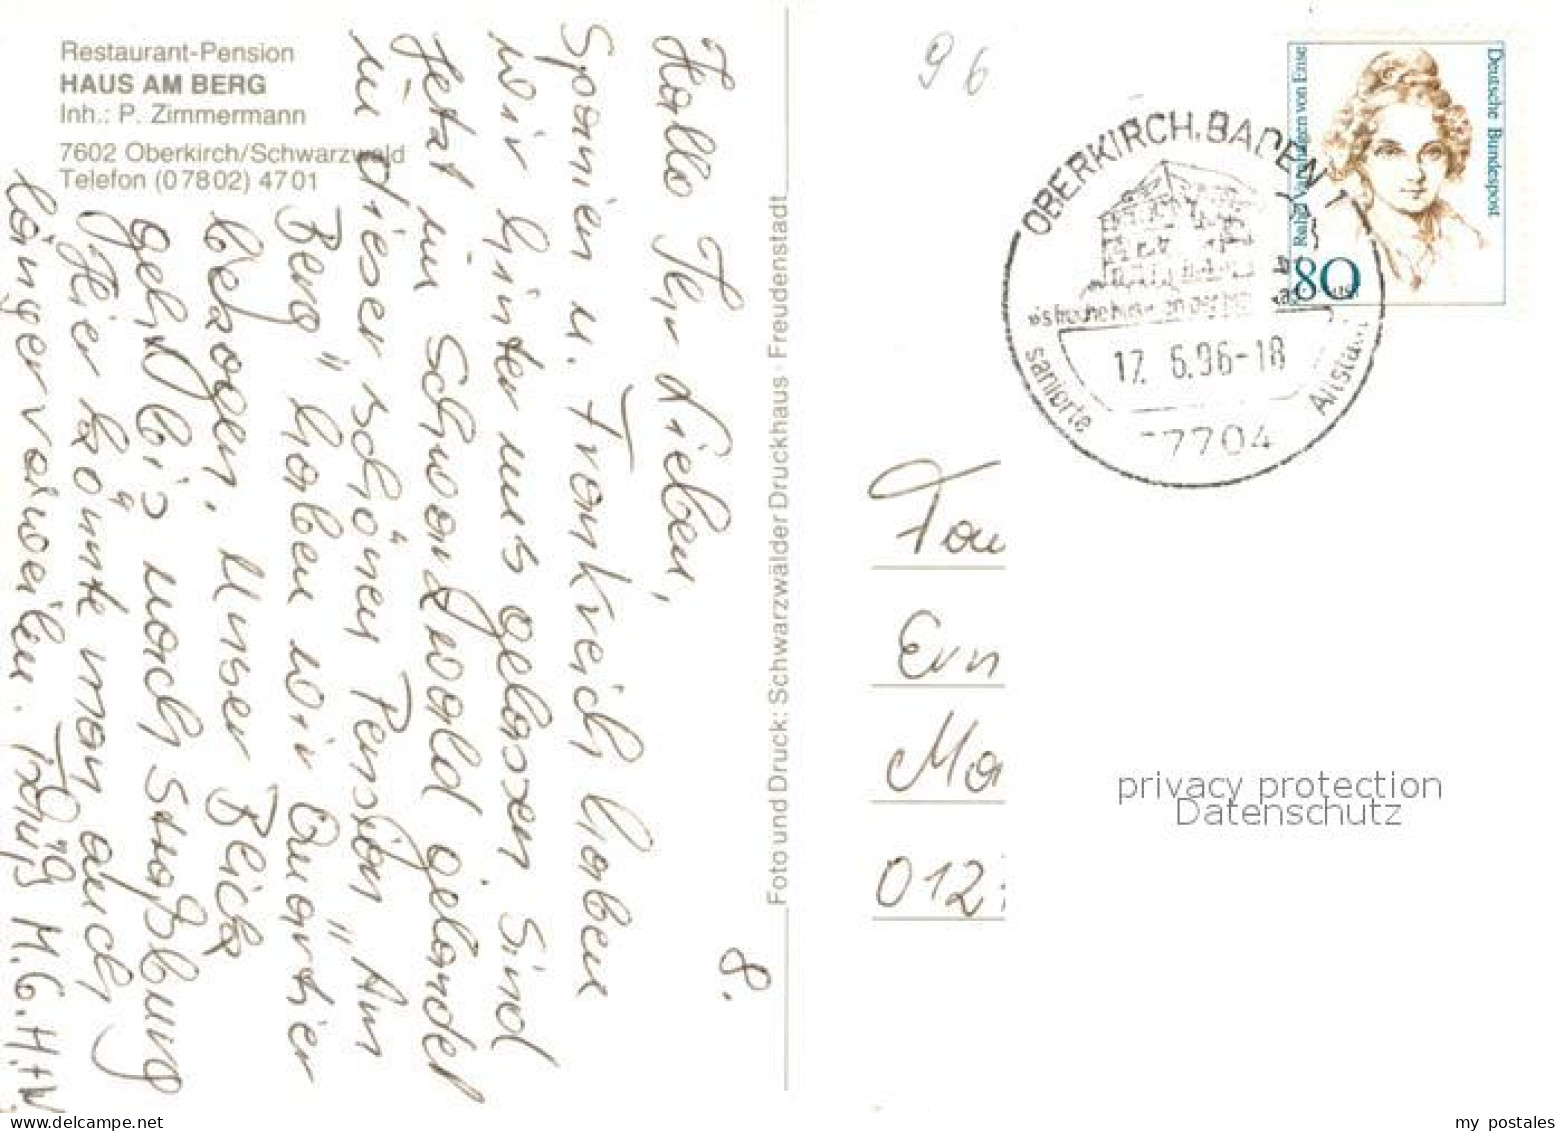 Restaurant-Pension
HAUS AM BERG
Inh.: P. Zimmermann
7602 Oberkirch/Schwarzwald
Telefon (07802) 4701
8.
Hallo Ihr Lieben,
Spanien u. Frankreich haben
wir hinter uns gelassen sind
jetzt im Schwarzwald gelandet
in dieser schönen Pension "Am
Berg" haben wir Quartier
bezogen, unser Blick
geht bis nach Straßburg
Hier könnte man auch
länger verweilen. Tschüß M. G. H. + W.
Foto und Druck: Schwarzwälder Druckhaus · Freudenstadt
96
Deutsche Bundespost
Rahel Varnhagen von Ense
80
OBERKIRCH, BADEN 1
17. 6.96-18
sanierte Altstadt
77704
Fam
Ern
Ma
012
privacy protection
Datenschutz
my postales